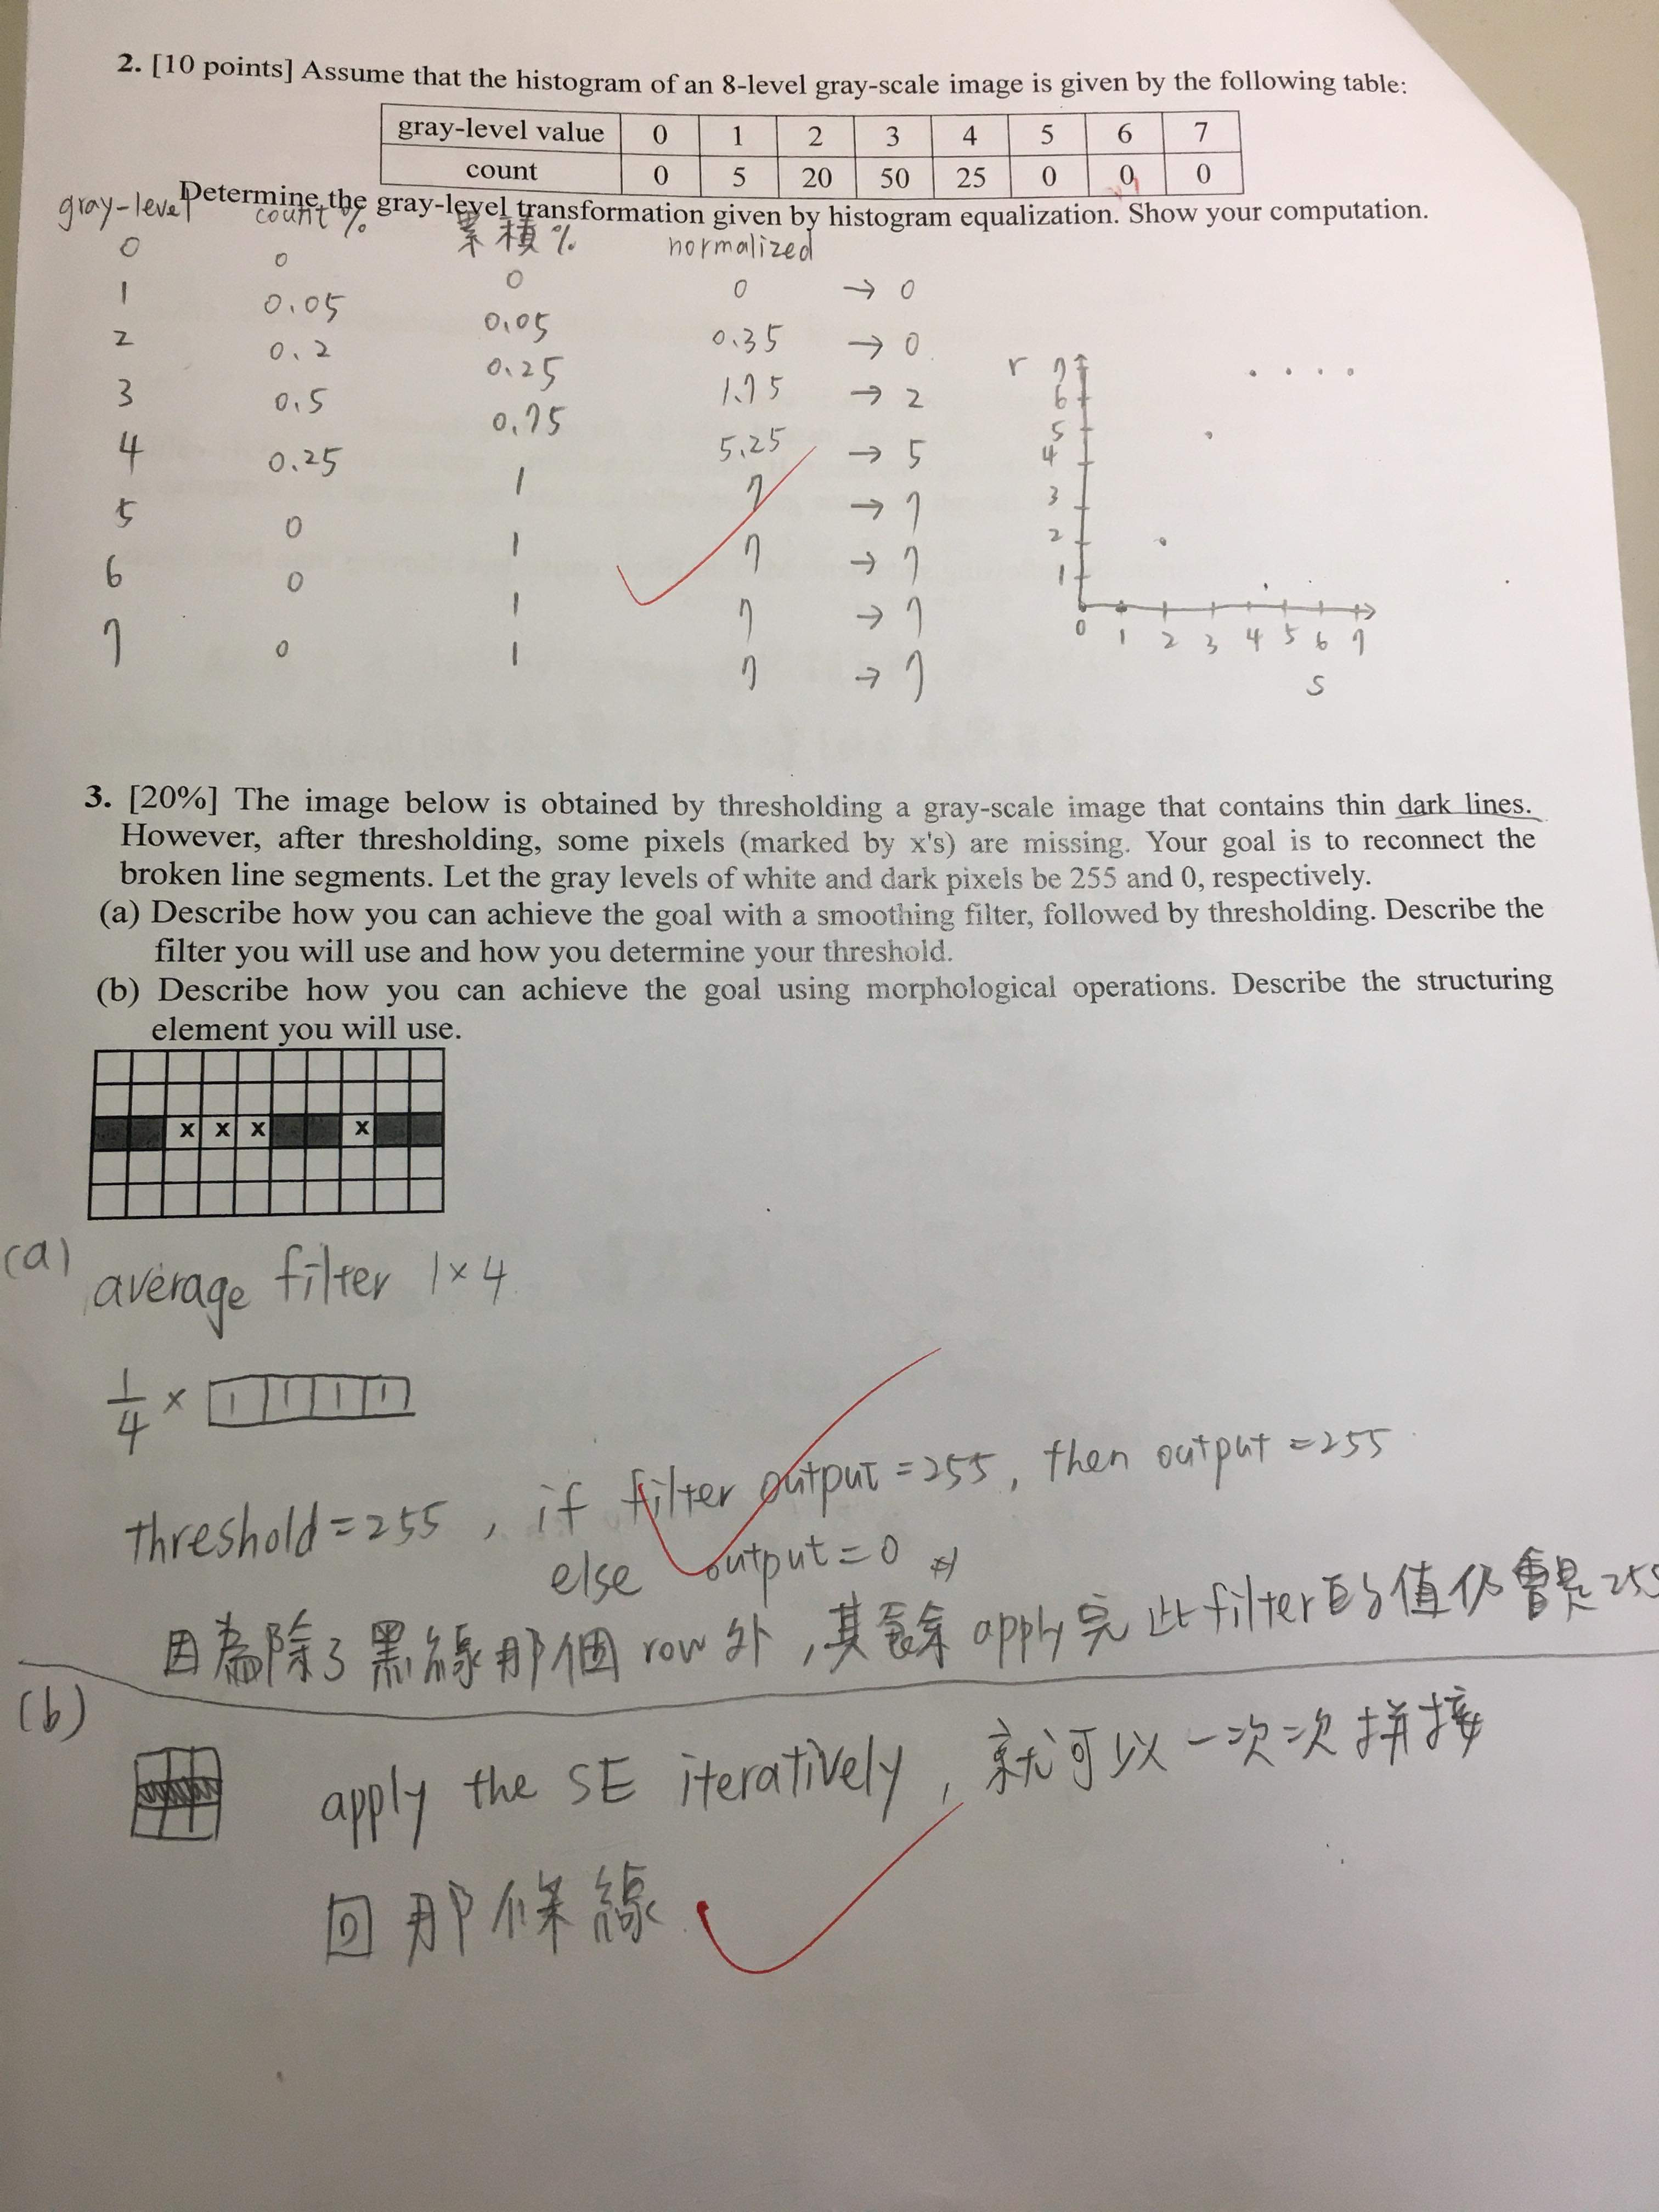 2. [10 points] Assume that the histogram of an 8-level gray-scale image is given by the following table:
gray-level value 0 1 2 3 4 5 6 7
count 0 5 20 50 25 0 0 0
Determine the gray-level transformation given by histogram equalization. Show your computation.
gray-level count % 累積 % normalized
0 0 0 0 → 0
1 0.05 0.05 0.35 → 0
2 0.2 0.25 1.75 → 2
3 0.5 0.75 5.25 → 5
4 0.25 1 7 → 7
5 0 1 7 → 7
6 0 1 7 → 7
7 0 1 7 → 7
r 7
6
5
4
3
2
1
0 1 2 3 4 5 6 7
s
3. [20%] The image below is obtained by thresholding a gray-scale image that contains thin dark lines.
However, after thresholding, some pixels (marked by x's) are missing. Your goal is to reconnect the
broken line segments. Let the gray levels of white and dark pixels be 255 and 0, respectively.
(a) Describe how you can achieve the goal with a smoothing filter, followed by thresholding. Describe the
filter you will use and how you determine your threshold.
(b) Describe how you can achieve the goal using morphological operations. Describe the structuring
element you will use.
x x x x
(a) average filter 1×4
1/4 × 1 1 1 1
threshold = 255 , if filter output = 255, then output = 255
else output = 0
因為除了黑線那個 row 外 , 其餘 apply 完 此 filter 的值仍會是 255
(b)
apply the SE iteratively , 就可以一次次拼接
回那條線